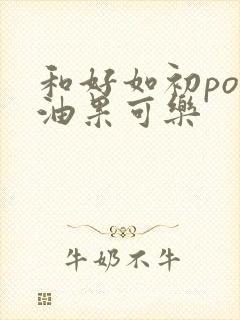 和好如初po
油果可樂
牛奶不牛